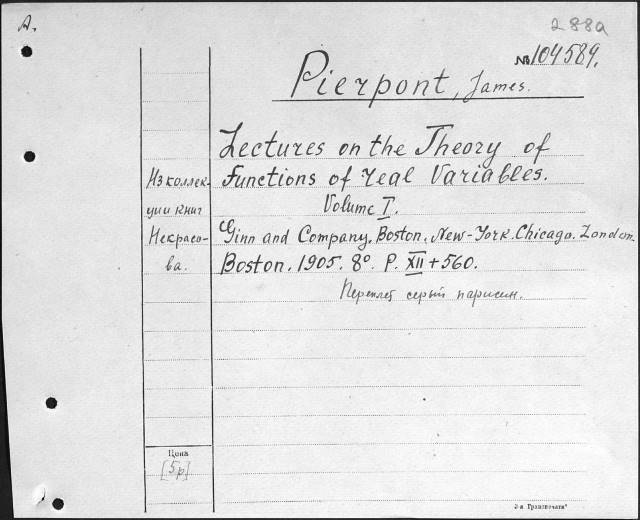 А.
288а
№ 104589.
Pierpont, James.
Lectures on the Theory of
Functions of real Variables.
Volume I.
Ginn and Company. Boston. New-York. Chicago. London.
Boston. 1905. 8°. P. XII + 560.
Переплет серый парусин.
Из коллек-
ции книг
Некрасо-
ва.
Цена
[5р]
3-я Гранпечать"